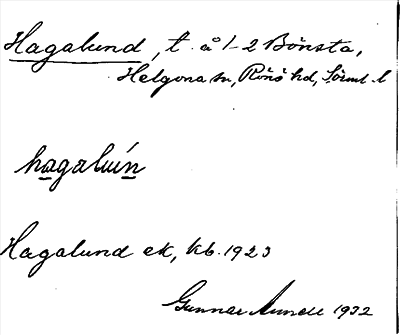 Hagalund, t. å 1-2 Bönsta,
Helgona sn, Rönö hd, Sörml. l
hagalun
Hagalund ek, kb. 1923
Gunnar Linde 1932